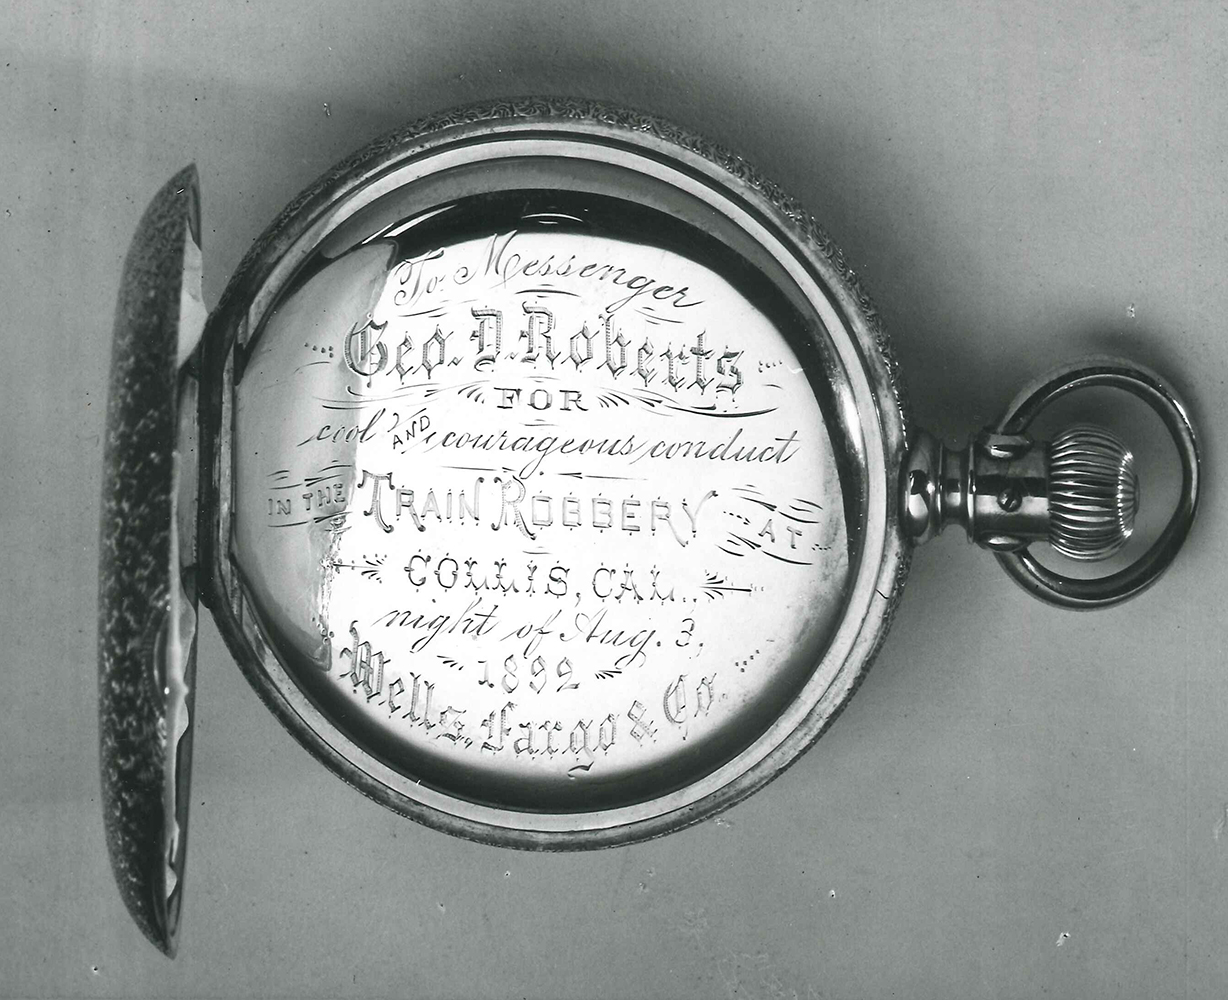 To Messenger
Geo. D. Roberts
FOR
cool AND courageous conduct
IN THE TRAIN ROBBERY AT
COLLIS, CAL.
night of Aug. 3,
1892
Wells, Fargo & Co.